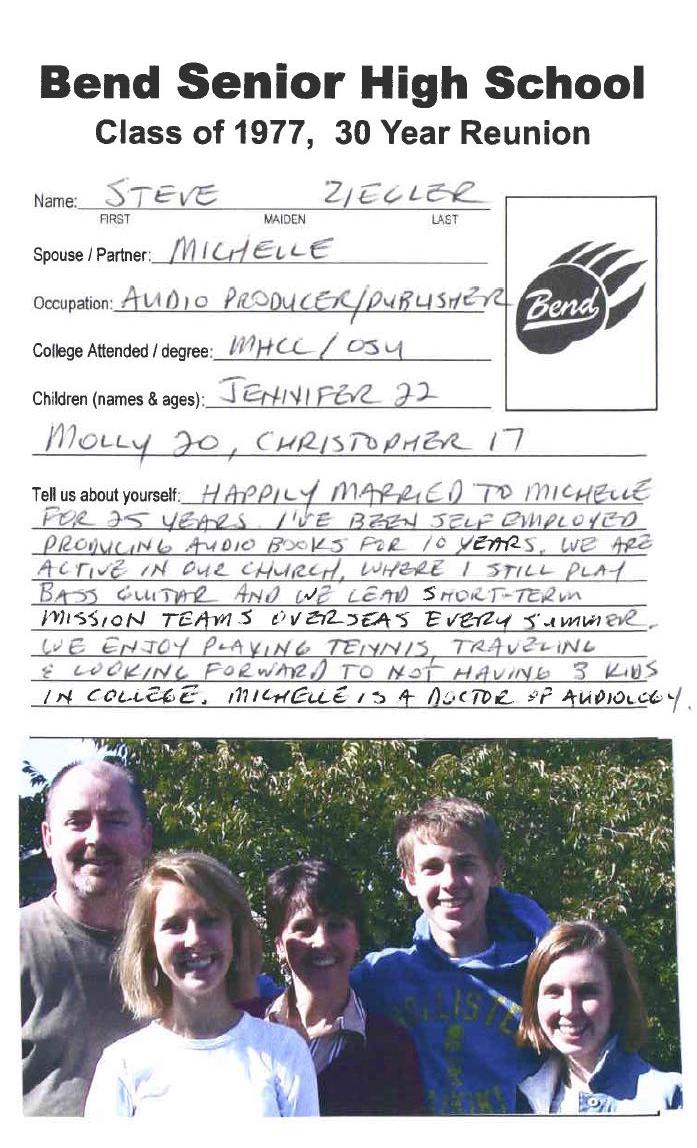 Bend Senior High School
Class of 1977, 30 Year Reunion
Name: STEVE ZIEGLER
FIRST MAIDEN LAST
Spouse / Partner: MICHELLE
Occupation: AUDIO PRODUCER/PUBLISHER
Bend
College Attended / degree: MHCC / OSU
Children (names & ages): JENNIFER 22
MOLLY 20, CHRISTOPHER 17
Tell us about yourself: HAPPILY MARRIED TO MICHELLE
FOR 25 YEARS. I'VE BEEN SELF EMPLOYED
PRODUCING AUDIO BOOKS FOR 10 YEARS. WE ARE
ACTIVE IN OUR CHURCH, WHERE I STILL PLAY
BASS GUITAR AND WE LEAD SHORT-TERM
MISSION TEAMS OVERSEAS EVERY SUMMER.
WE ENJOY PLAYING TENNIS, TRAVELING
& LOOKING FORWARD TO NOT HAVING 3 KIDS
IN COLLEGE. MICHELLE IS A DOCTOR OF AUDIOLOGY.
HOLLISTER